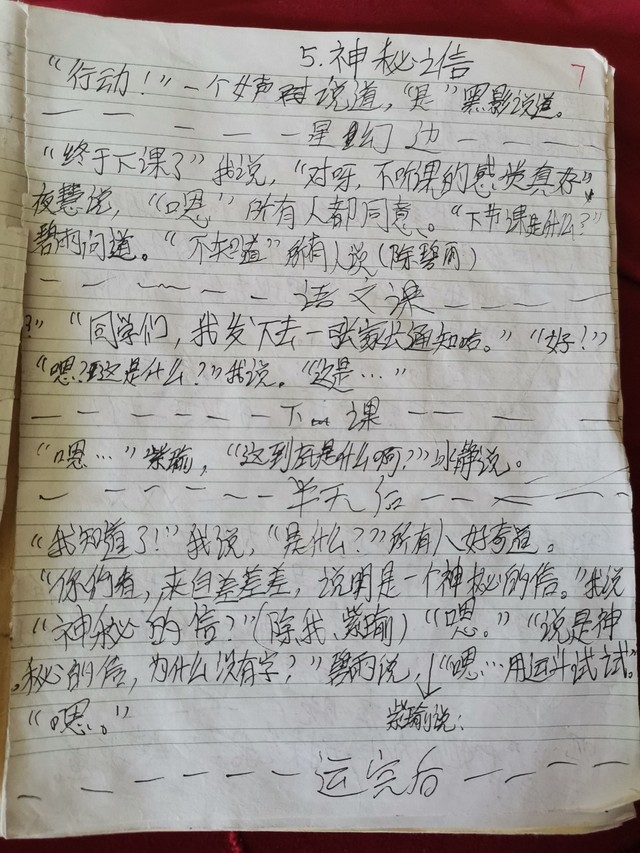 5.神秘之信
7
“行动！”一个女声说道，“是”黑影说道。
— — — — — 星幻边 — — — —
“终于下课了”我说，“对呀，不听课的感觉真好”
夜慧说，“嗯”所有人都同意。“下节课是什么？”
碧雨问道。“不知道”所有人说(除碧雨)
— — — — — 语文课 — — — —
“同学们，我发下去一张家长通知哈。”“好！”
“嗯？这是什么？”我说。“这是…”
— — — — — — 下课 — — — —
“嗯…”紫瑜，“这到底是什么啊？”冰静说。
— — — — — 半天后 — — — —
“我知道了！”我说，“是什么？”所有人好奇道。
“你们看，来自差差差，说明是一个神秘的信。”我说
“神秘的信？”(除我、紫瑜)“嗯。”“说是神
秘的信，为什么没有字？”碧雨说，↓“嗯…用运斗试试。”
“嗯。” 紫瑜说：
— — — — — — 运完后 — — — —